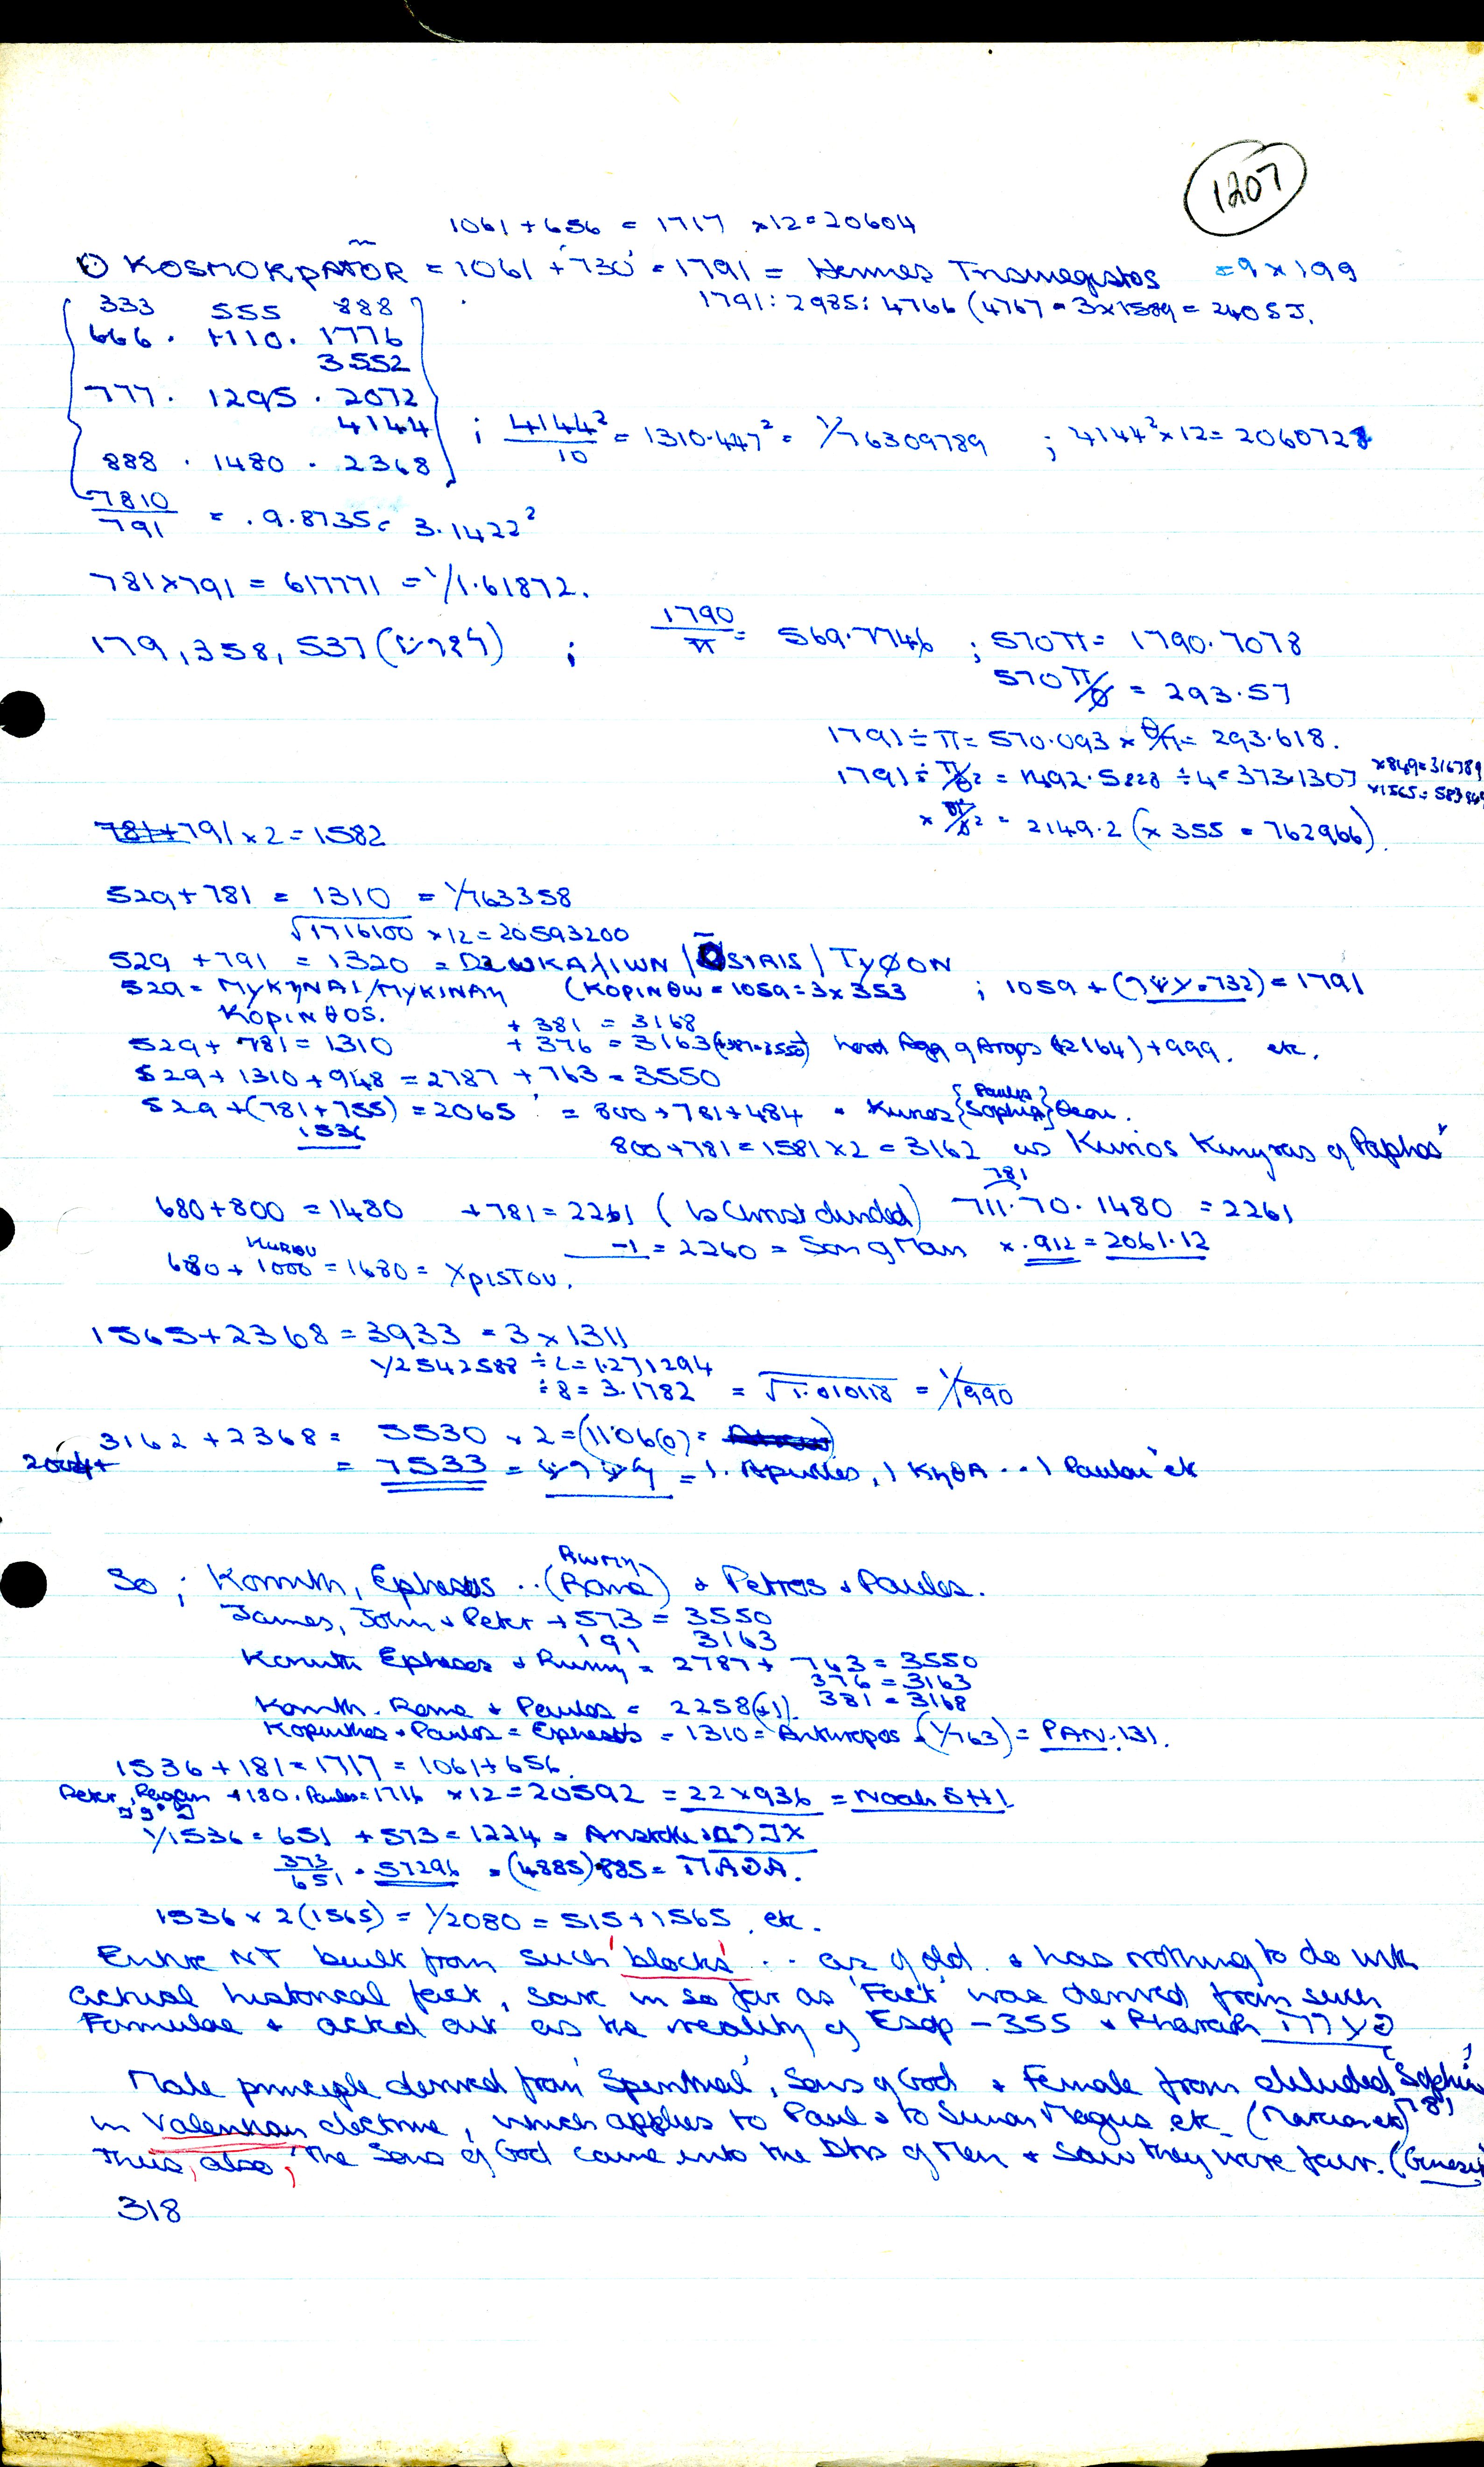 1207
1061 + 656 = 1717 ×12 = 20604
KOSMOKρATOR = 1061 + '730' = 1791 = Hermes Trismegistos = 9 × 199
333 555 888
1791 : 2985 : 4766 (4767 = 3×1589 = 240SJ.
666 . 1110 . 1776
3552
777 . 1295 . 2072
4144 ; 4144²/10 = 1310.447² = 1/76309789 ; 4144² × 12 = 2060728
888 . 1480 . 2368
7810/791 = .9.8735 = 3.1422²
781×791 = 617771 = 1/1.61872.
179, 358, 537 ; 1790/π = 569.7746 ; 570π = 1790.7078
570 π/φ = 293.57
1791 ÷ π = 570.093 × = 293.618.
1791 ÷ = 1492.5828 ÷ 4 = 373.1307 ×849 = 316789
×1565 = 583
× = 2149.2 (× 355 = 762966).
781+791 × 2 = 1582
529 + 781 = 1310 = 1/763358
√1716100 ×12 = 20593200
529 + 791 = 1320 = DEωKAλIWN / OSIRIS / TyφON
529 = MYKηNAI / MYKINAη (KOPINθW = 1059 = 3×353 ; 1059 + ( = 732) = 1791
KOPINθOS. + 381 = 3168
529 + 781 = 1310 + 376 = 3163 (+387=3550) (2164) + 999. etc.
529 + 1310 + 948 = 2787 + 763 = 3550
529 + (781 + 755) = 2065 = 800 + 781 + 484 = Kurios {Paulos Sophia} Theou.
1536
800 + 781 = 1581 × 2 = 3162 as Kurios Kinyras of Paphos
781
680 + 800 = 1480 + 781 = 2261 (Is Christ divided) 711.70.1480 = 2261
-1 = 2260 = Son of Man × .912 = 2061.12
KURIOU
680 + 1000 = 1680 = XρISTOU.
1565 + 2368 = 3933 = 3 × 1311
1/2542588 ÷ 2 = 1.271294
÷ 8 = 3.1782 = √1.010118 = 1/990
3162 + 2368 = 5530 × 2 = (11.06(0) =
2004+ = 7533 = = 1. Apollos, 1 KηθA .. 1 Paulou etc
RWMη
So ; Korinth, Ephesus .. (Roma) + Petros + Paulos.
James, John + Peter + 573 = 3550
191 3163
Korinth Ephesos + Rwmη = 2787 + 763 = 3550
376 = 3163
Korinth. Roma + Paulos = 2258(+1). 381 = 3168
Kopinthos + Paulos = Ephesus = 1310 = Anthropos = (1/763) = PAN. 131.
1536 + 181 = 1717 = 1061 + 656.
Peter, + 180. Paulos = 1716 × 12 = 20592 = 22 × 936 = Noah SHL
1/1536 = 651 + 573 = 1224 =
373/651 = 57296 = (4885) 885 =
1536 × 2(1565) = 1/2080 = 515 + 1565. etc.
Entire NT built from such 'blocks' .. as of old. + has nothing to do with
actual historical fact, save in so far as 'Fact' was derived from such
Formulae + acted out as the reality of Esop - 355 + Pharaoh
Male principle derived from 'Spiritual', Sons of God + Female from deluded 'Sophia'
781
in Valentian doctrine, which applies to Paul & to Simon Magus etc (Marcion etc)
Thus, also, 'the Sons of God came into the Dtrs of Men + saw they were fair. (Genesis
318